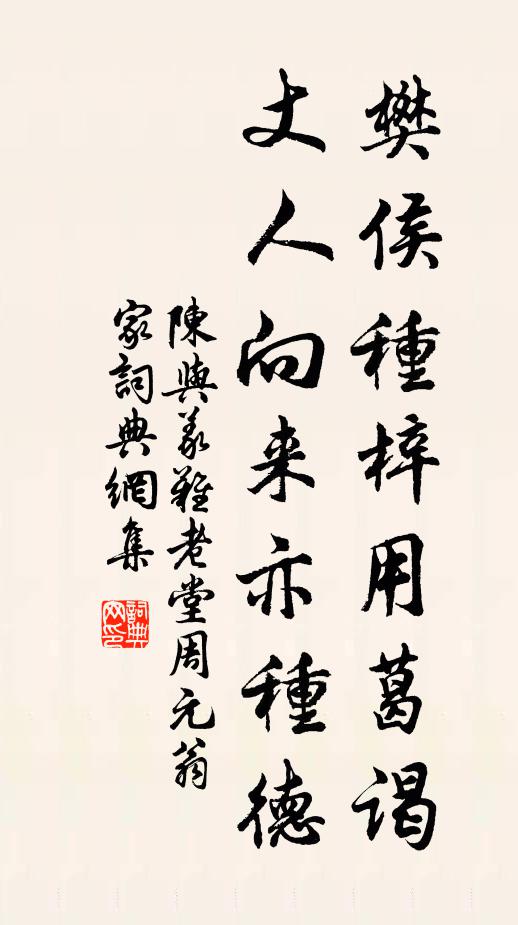 樊侯種梓用葛谒
丈人向来亦種德
陳與義難老堂周元翁
家詞典網集
詞典网印